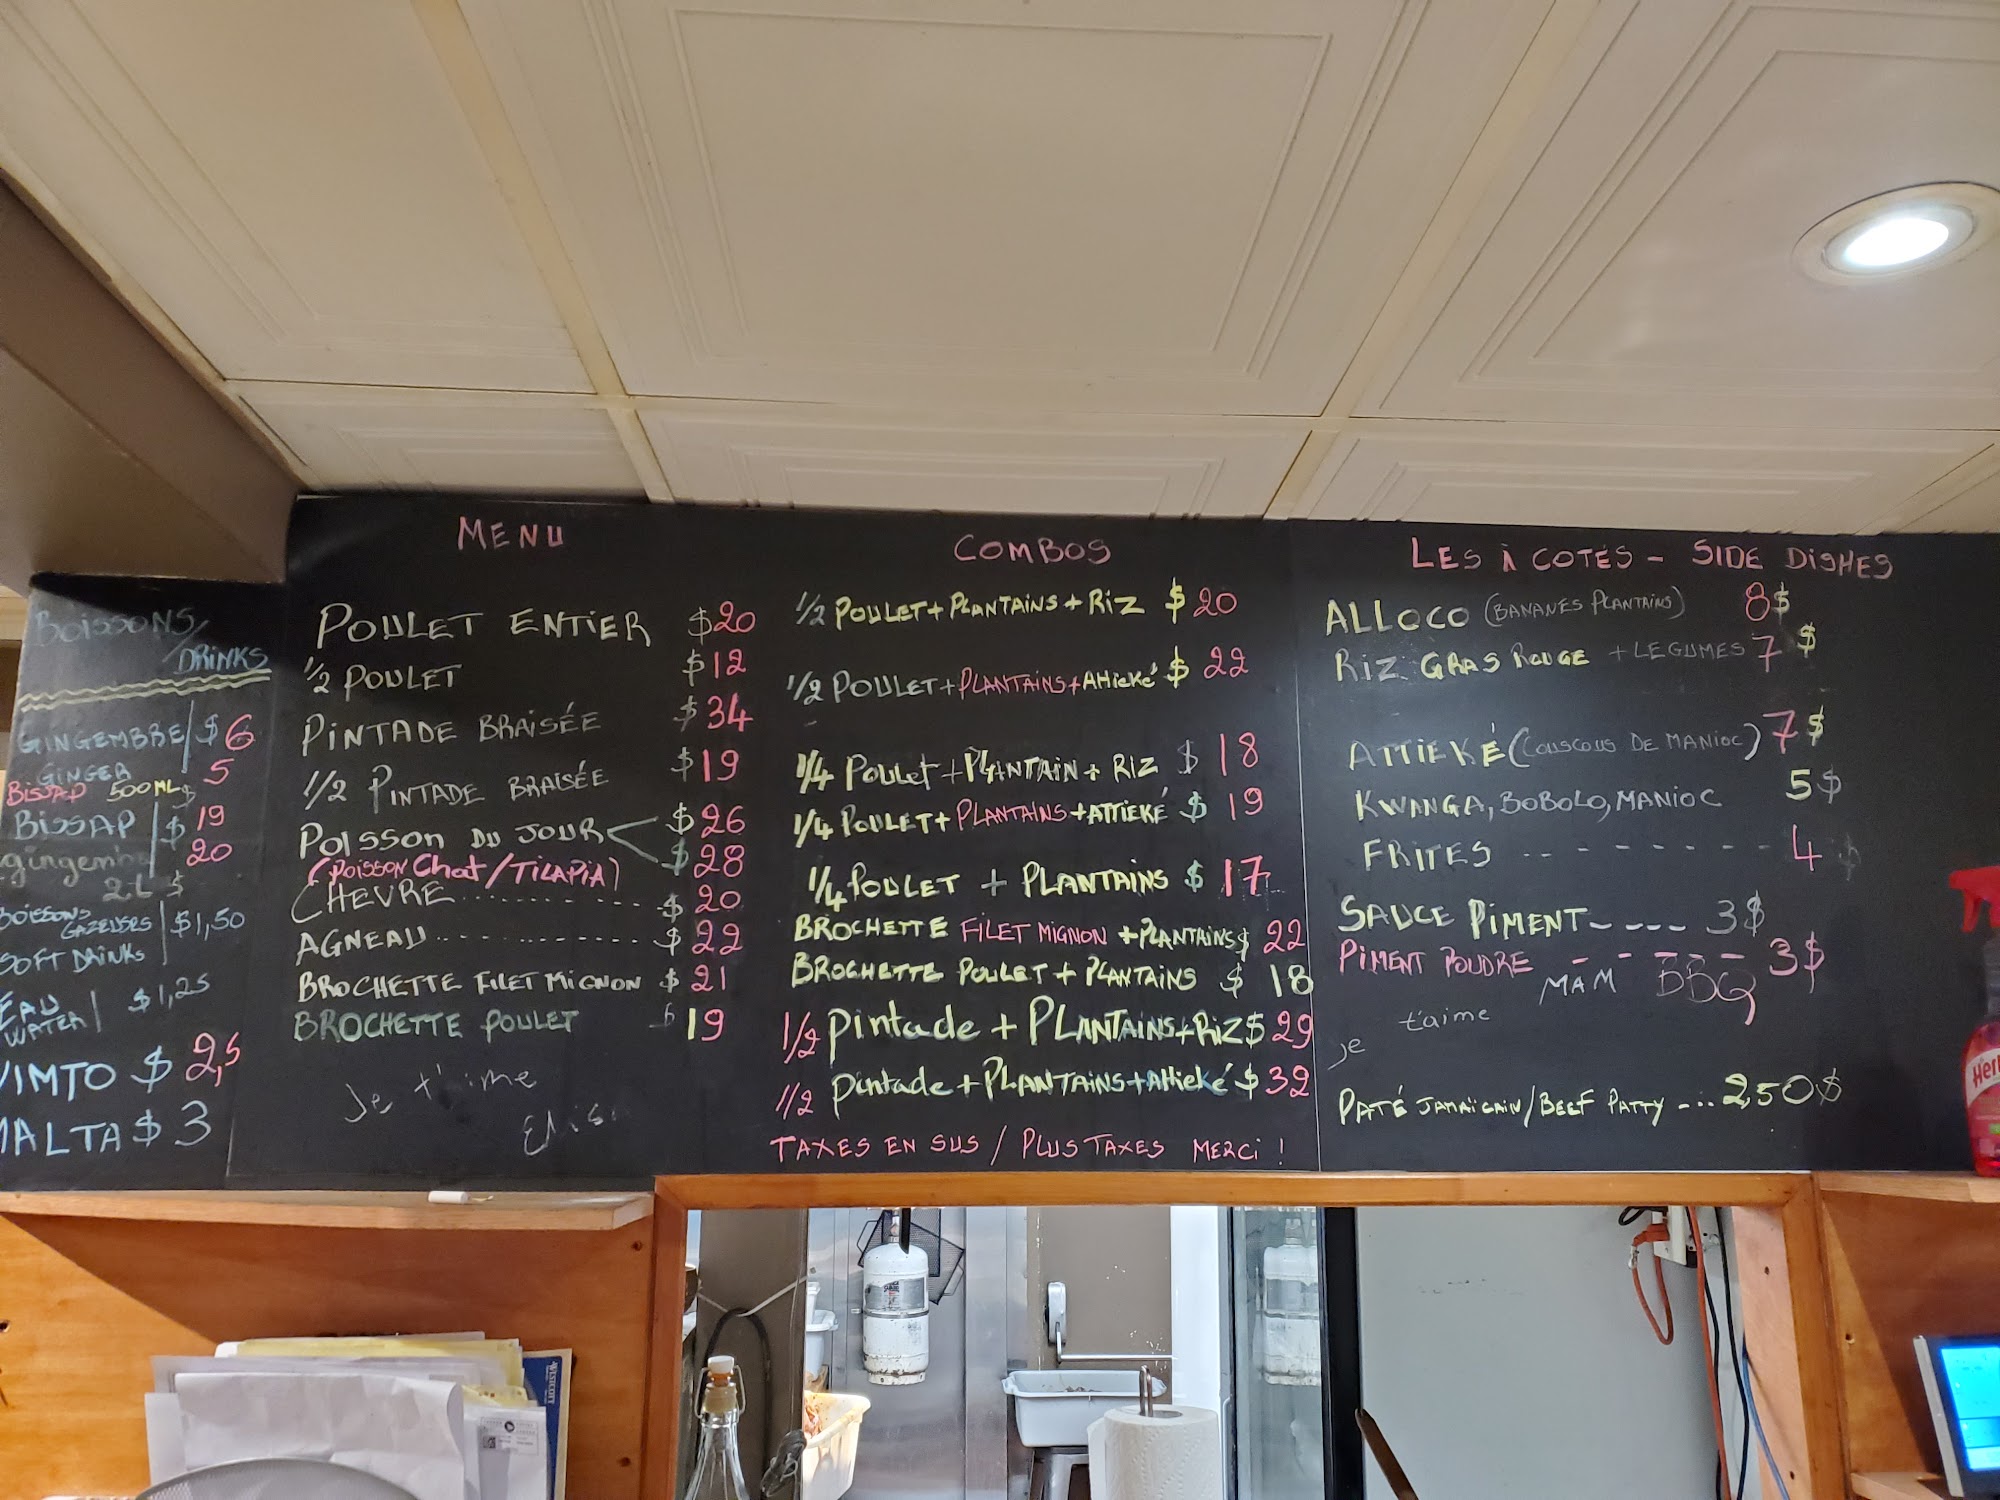 BOISSONS/
DRINKS
GINGEMBRE $6
GINGER
BISSAP 500ML $ 5
BISSAP $ 19
gingemb 20
2L $
BOISSONS
GAZEUSES $1,50
SOFT DRINKS
EAU
WATER $1,25
VIMTO $ 2,5
MALTA $ 3
MENU
POULET ENTIER $20
1/2 POULET $12
PINTADE BRAISÉE $34
1/2 PINTADE BRAISÉE $19
POISSON DU JOUR < $26
$28
(POISSON Chat/TILAPIA)
CHEVRE.......... $ 20
AGNEAU.......... $ 22
BROCHETTE FILET MIGNON $ 21
BROCHETTE POULET $ 19
Je t'aime
COMBOS
1/2 POULET+PLANTAINS+RIZ $ 20
1/2 POULET+PLANTAINS+Attieké $ 22
1/4 Poulet+PLANTAIN+RIZ $ 18
1/4 POULET+PLANTAINS+ATTIEKÉ $ 19
1/4 POULET + PLANTAINS $ 17
BROCHETTE FILET MIGNON +PLANTAINS $ 22
BROCHETTE POULET + PLANTAINS $ 18
1/2 pintade + PLANTAINS+RIZ $ 29
1/2 pintade+PLANTAINS+Attieké $ 32
TAXES EN SUS / PLUS TAXES MERCI !
LES À COTÉS - SIDE DISHES
ALLOCO (BANANES PLANTAINS) 8$
RIZ GRAS ROUGE + LEGUMES 7 $
ATTIEKÉ (COUSCOUS DE MANIOC) 7 $
KWANGA, BOBOLO, MANIOC 5$
FRITES -------- 4 $
SAUCE PIMENT---- 3$
PIMENT POUDRE ----- 3$
MAM BBQ
t'aime
je
PATÉ JAMAÏCAIN/BEEF PATTY -... 2,50$
WESTCOTT